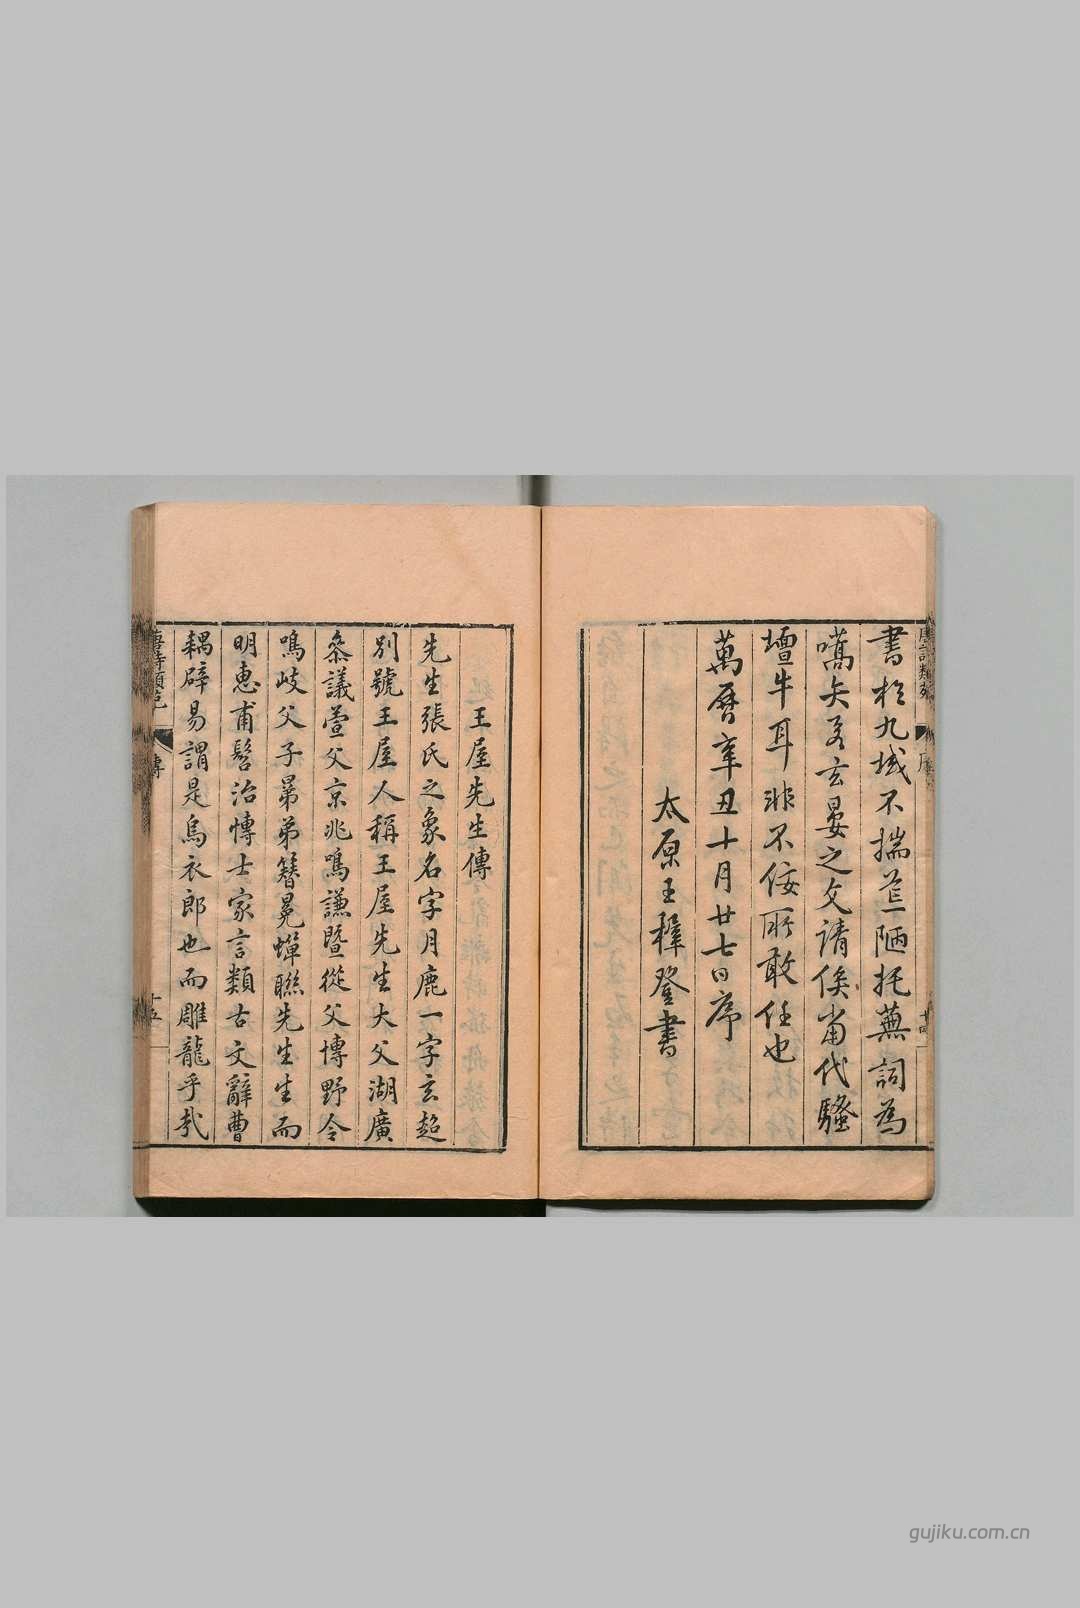 書於九域不揣菲陋托蕪詞為
嚆矢若玄晏之文請俟當代騷
壇牛耳非不佞所敢任也
萬曆辛丑十月廿七日序
太原王穉登書
王屋先生傳
先生張氏之象名字月鹿一字玄超
別號王屋人稱王屋先生大父湖廣
叅議萱父京兆鳴謙暨從父博野令
鳴岐父子暴弟簪冕蟬聯先生生而
明惠甫髫治博士家言類古文辭曹
耦辟易謂是烏衣郎也而雕龍乎哉
唐詩類苑
傳
十五
gujiku.com.cn